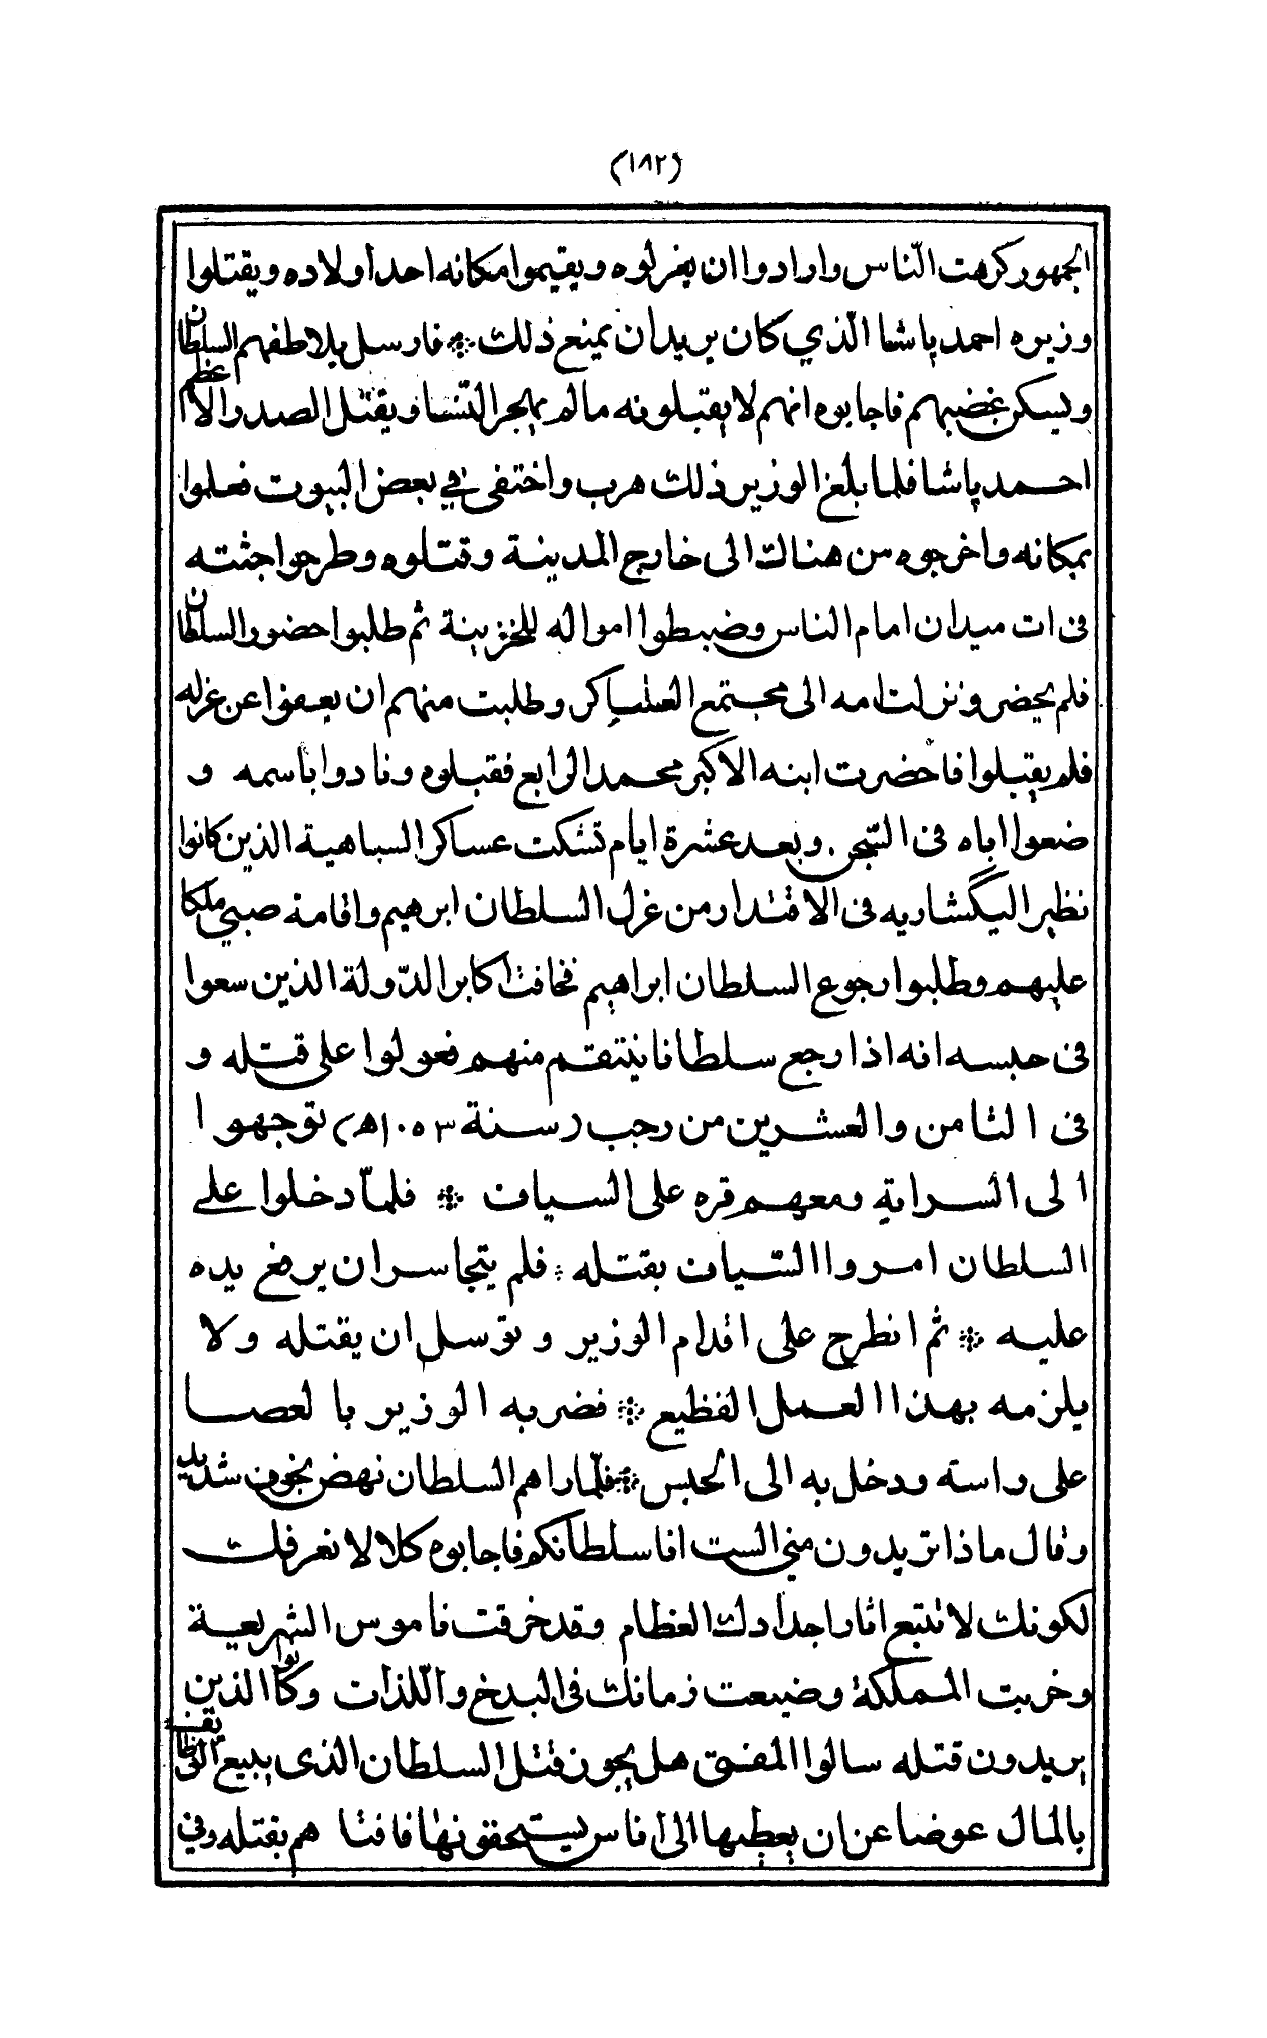 (١٨٢)
الجمهور كرهت النّاس وارادوا ان يعزلوه ويقيموا مكانه احد أولاده ويقتلوا
وزيره احمد پاشا الّذي كان يريد ان يمنع ذلك * فارسل يلاطفهم السلطان
ويسكن غضبهم فاجابوه انهم لا يقبلونه مالم يهجر النّسا ويقتل الصدر الاعظم
احمد پاشا فلما بلغ الوزير ذلك هرب واختفى في بعض البيوت فعلموا
بمكانه واخرجوه من هناك الى خارج المدينة وقتلوه وطرحوا جثته
فى ات ميدان امام الناس وضبطوا امواله للخزينة ثم طلبوا حضور السلطان
فلم يحضر ونزلت امه الى مجتمع العساكر وطلبت منهم ان يعفوا عن عزله
فلم يقبلوا فاحضرت ابنه الاكبر محمد الرابع فقبلوه ونادوا باسمه و
ضعوا اباه فى السّجن. وبعد عشرة ايام تشكت عساكر السباهية الذين كانوا
نظير اليكشاريه فى الاقتدار من عزل السلطان ابرهيم واقامة صبي ملكا
عليهم وطلبوا رجوع السلطان ابراهيم فخافت اكابر الدّولة الذين سعوا
فى حبسه انه اذا رجع سلطانا ينتقم منهم فعولوا على قتله و
فى الثامن والعشرين من رجب (سنة ١٠٥٣ﻫ) توجهوا
الى السراية ومعهم قره على السياف * فلمّا دخلوا على
السلطان امروا السّياف بقتله * فلم يتجاسر ان يرفع يده
عليه * ثم انطرح على اقدام الوزير وتوسل ان يقتله ولا
يلزمه بهذا العمل الفظيع * فضربه الوزير بالعصا
على راسه ودخل به الى الحبس * فلمّا راهم السلطان نهض بخوف شديد
وقال ماذا تريدون مني الست انا سلطانكم فاجابوه كلا لا نعرفك
لكونك لا تتبع اثار اجدادك العظام وقد خرقت ناموس الشريعة
وخربت المملكة وضيعت زمانك فى البذخ واللّذات وكانوا الذين
يريدون قتله سالوا المفتى هل يجوز قتل السلطان الذى يبيع الوظائف
بالمال عوضا عن ان يعطيها الى اناس يستحقونها فافتا هم بقتله وفي